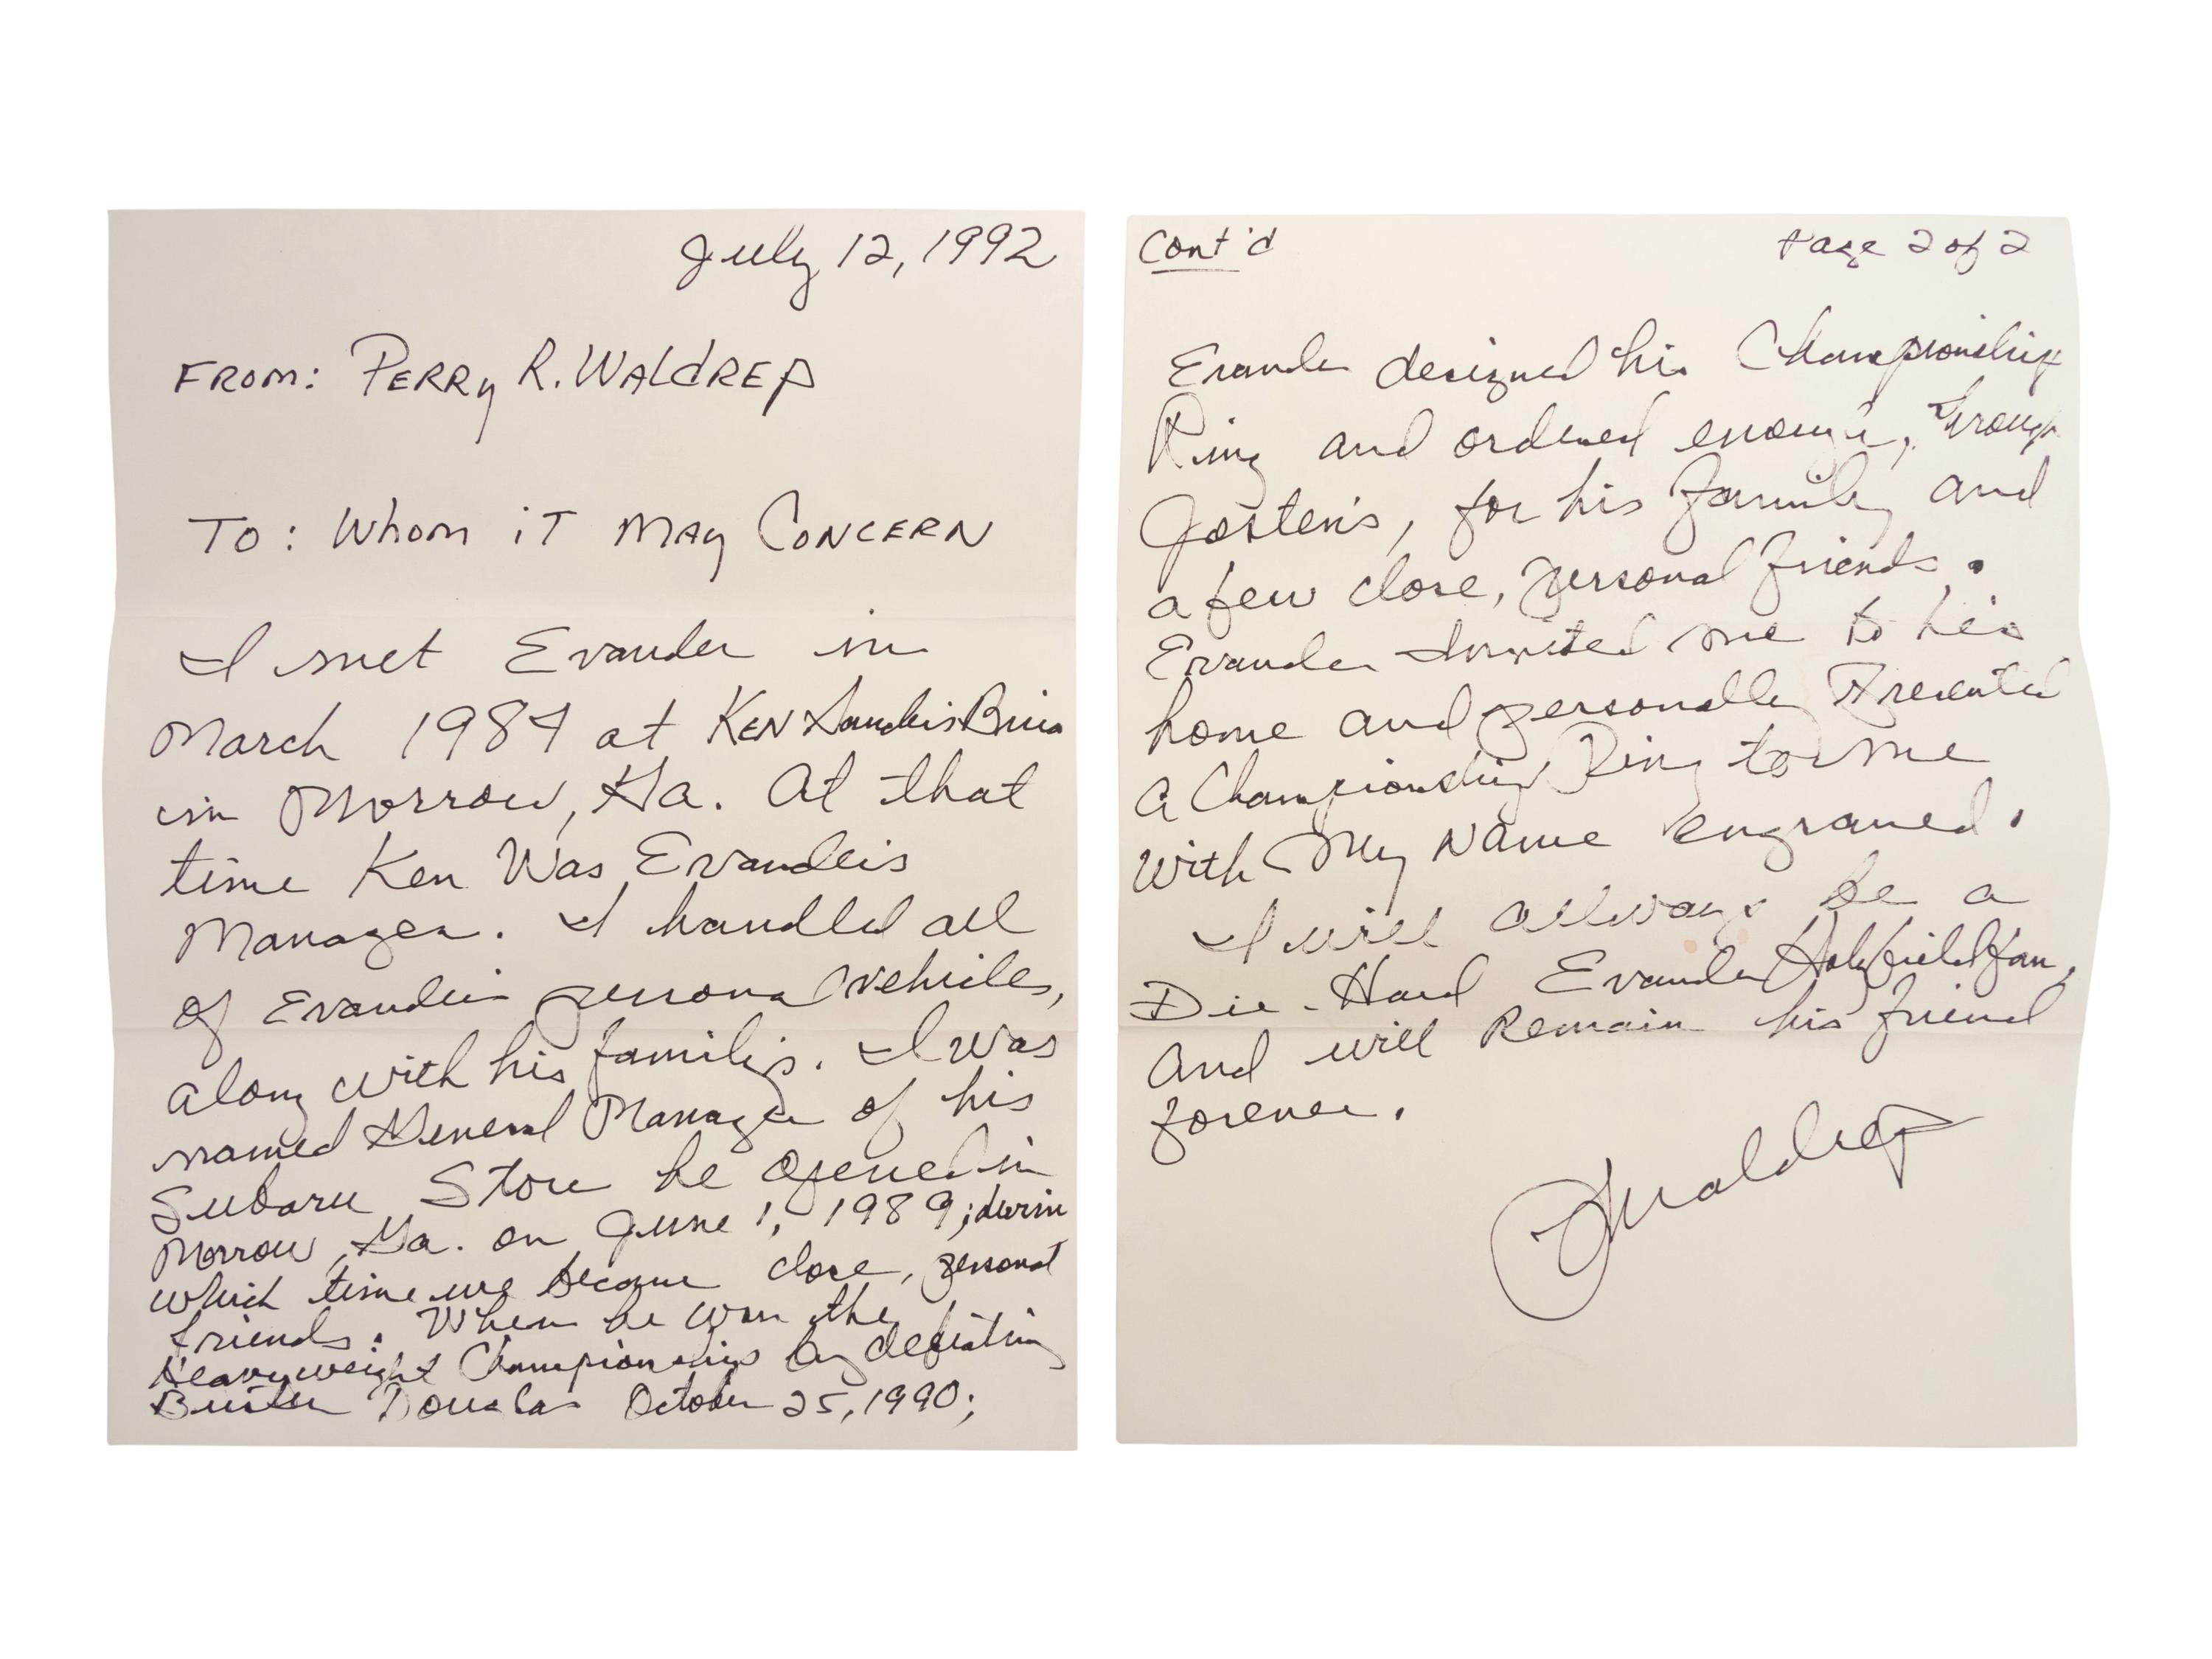 July 12, 1992
FROM: PERRY R. WALdREP
TO: Whom iT MAy CONCERN
I met Evander in
March 1987 at KEN
in Morrow, Ga. At that
time Ken Was Evander's
Manager. I handled all
of Evander's personal vehicles,
along with his family's. I was
named General Manager of his
Subaru Store he opened in
Morrow, Ga. on June 1, 1989; durin
which time we became close, personal
friends. When he won the
Heavyweight Championship by defeating
Buster Douglas October 25, 1990;
Cont'd
Page 2 of 2
Evander designed his Championship
Ring and ordered enough, through
Josten's, for his family and
a few close, personal friends.
Evander Invited me to his
home and personally Presented
a Championship Ring to me
With My Name engraved.
I will allways be a
Die-Hard Evander Holyfield fan,
and will Remain his friend
forever.
PWaldrep